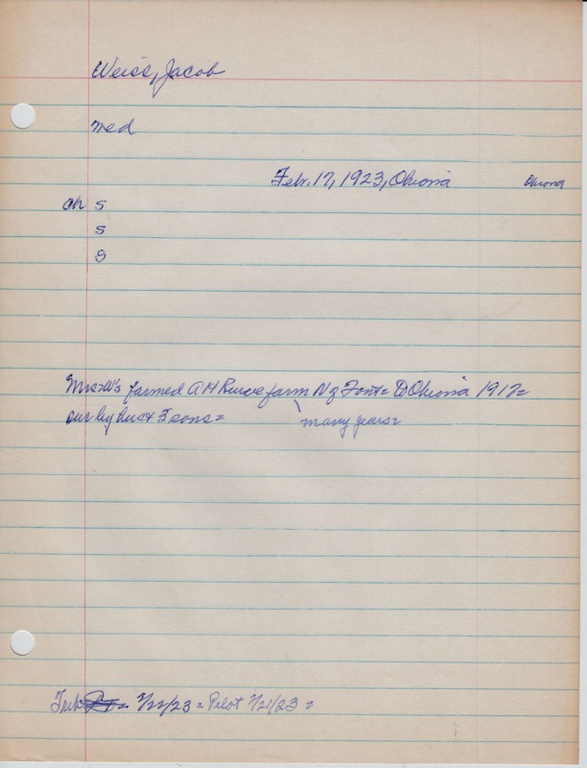 Weiss, Jacob
med
Febr. 17, 1923, Okiona Okiona
ch s
s
s
Mr & W's farmed A H Reuwe farm N of Font= D Okiona 1917=
sur by hus & 3 sons= many years=
Trib 2/22/23 = Pilot 2/21/23 =